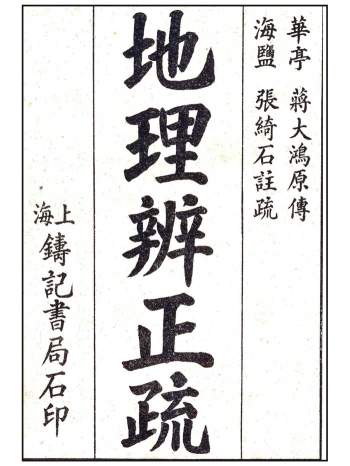 華亭 蔣大鴻原傳
海鹽 張綺石註疏
地理辨正疏
上海鑄記書局石印